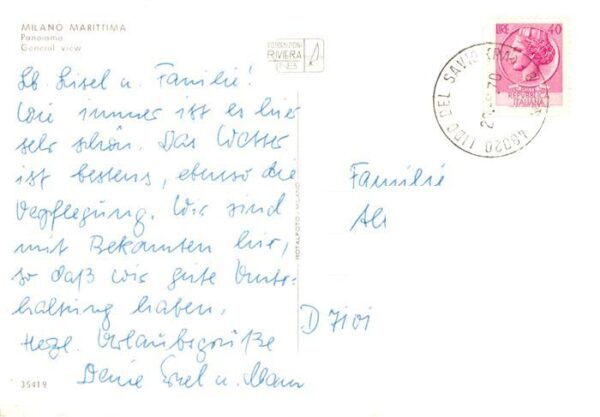 MILANO MARITTIMA
Panorama
General view
RIVIERA
LIRE 40
REPUBBLICA
ITALIANA
48020 LIDO DEL SAVIO (RA)
Lb. Lisel u. Familie!
Wie immer ist es hier
sehr schön. Das Wetter
ist bestens, ebenso die
Verpflegung. Wir sind
mit Bekannten hier,
so daß wir gute Unter-
haltung haben.
Herzl. Urlaubsgrüße
Deine u. Mann
Familie
D 7101
ROTALFOTO - MILANO
35419